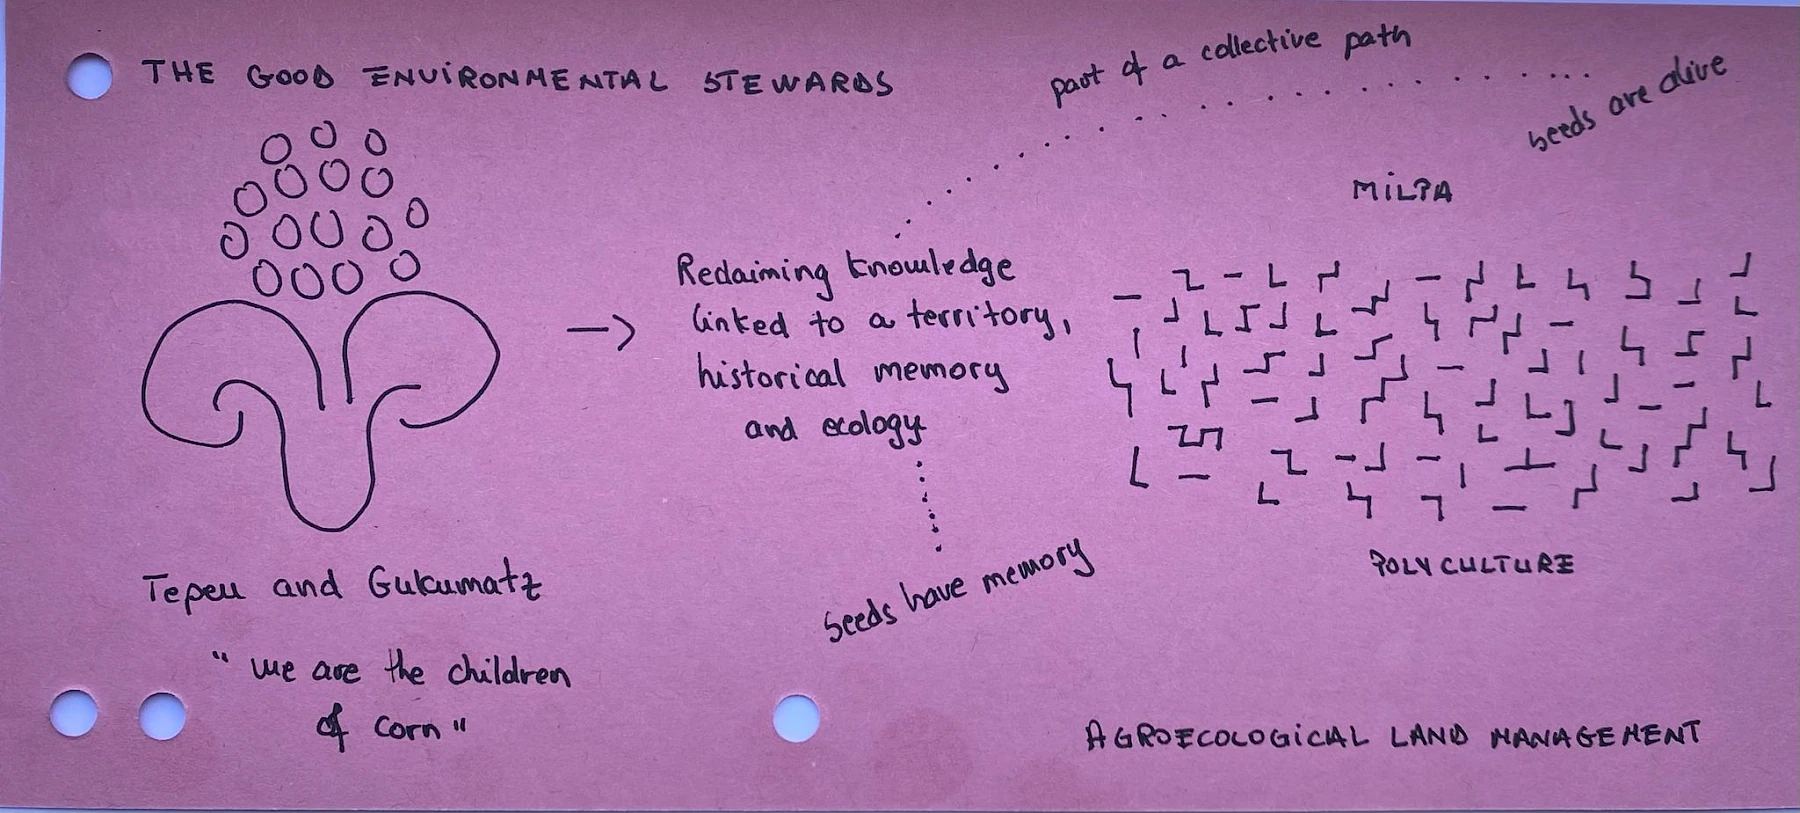 THE GOOD ENVIRONMENTAL STEWARDS
part of a collective path
seeds are alive
MILPA
Reclaiming knowledge
linked to a territory,
historical memory
and ecology
seeds have memory
POLYCULTURE
Tepeu and Gukumatz
"we are the children
of corn"
AGROECOLOGICAL LAND MANAGEMENT